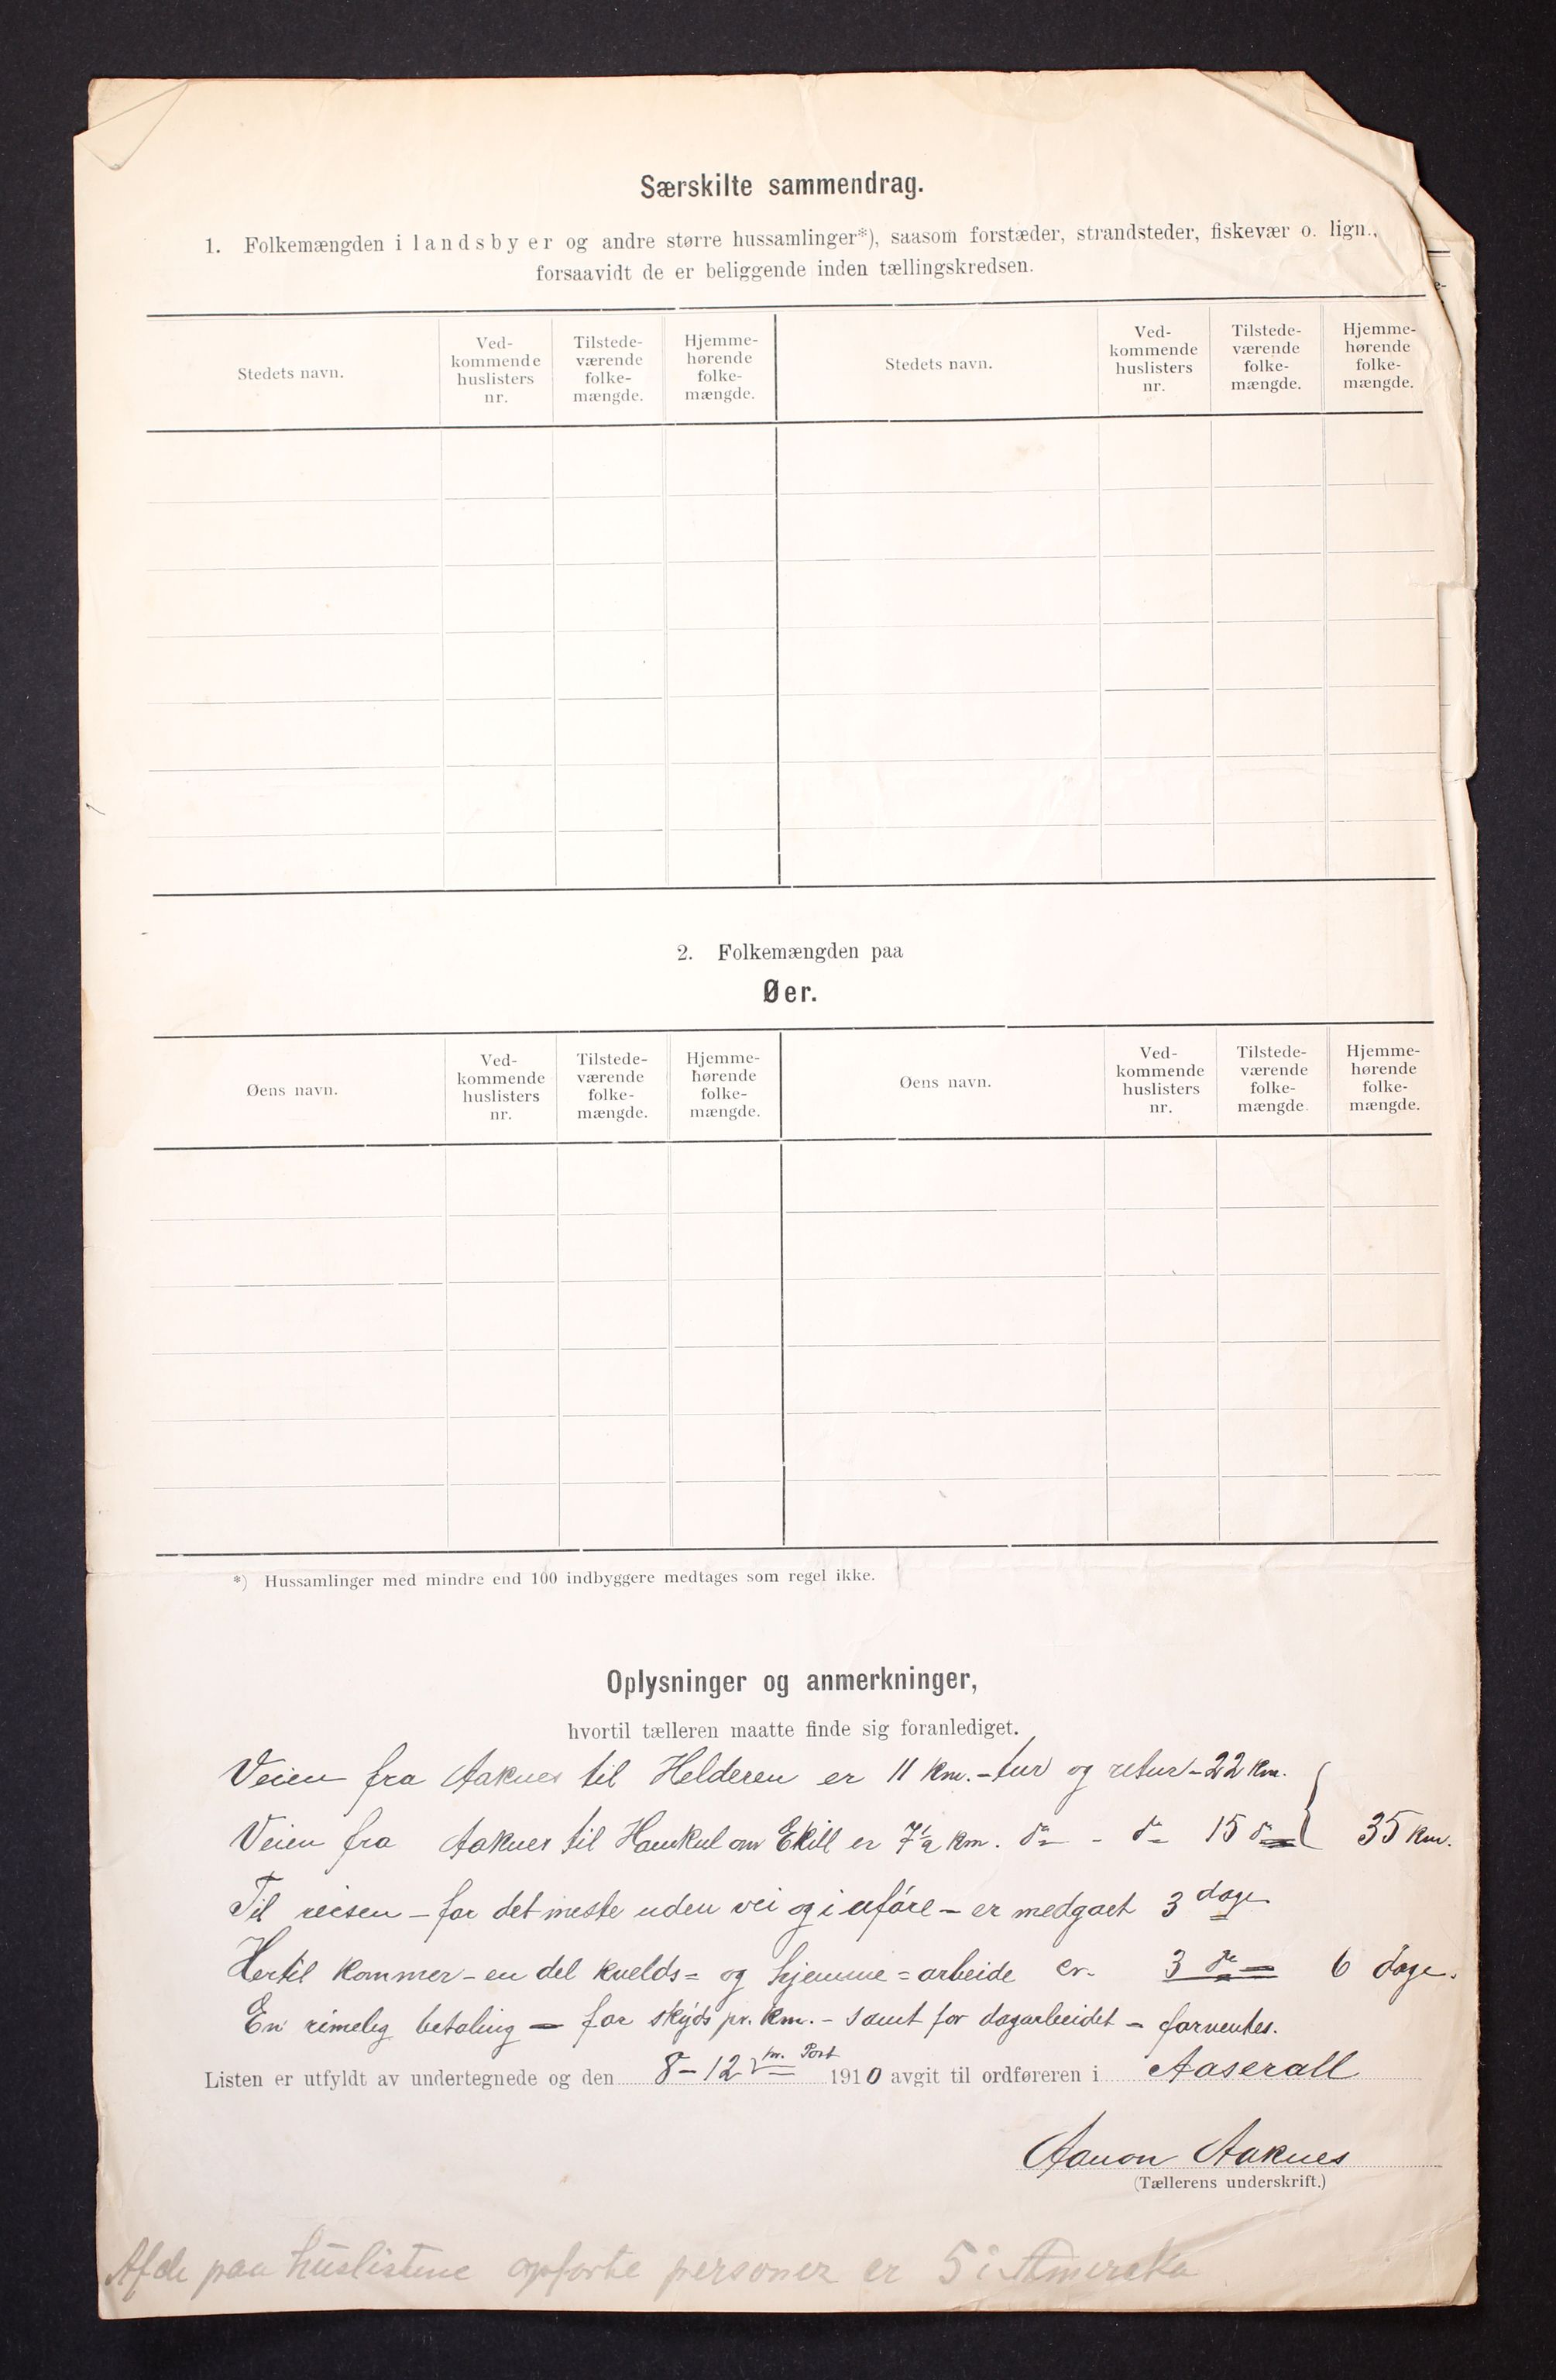 Særskilte sammendrag.
1. Folkemængden i landsbyer og andre større hussamlinger*), saasom forstæder, strandsteder, fiskevær o. lign.,
forsaavidt de er beliggende inden tællingskredsen.
Stedets navn.
Ved-
kommende
huslisters
nr.
Tilstede-
værende
folke-
mængde.
Hjemme-
hørende
folke-
mængde.
Stedets navn.
Ved-
kommende
huslisters
nr.
Tilstede-
værende
folke-
mængde.
Hjemme-
hørende
folke-
mængde.
2. Folkemængden paa
Øer.
Øens navn.
Ved-
kommende
huslisters
nr.
Tilstede-
værende
folke-
mængde.
Hjemme-
hørende
folke-
mængde.
Øens navn.
Ved-
kommende
huslisters
nr.
Tilstede-
værende
folke-
mængde.
Hjemme-
hørende
folke-
mængde.
*) Hussamlinger med mindre end 100 indbyggere medtages som regel ikke.
Oplysninger og anmerkninger,
hvortil tælleren maatte finde sig foranlediget.
Veien fra Aaknes til Helderen er 11 km. - tur og retur - 22 km.
Veien fra Aaknes til er 7½ km. do - do 15 do } 35 km.
Til reisen - for det meste uden vei og i uføre - er medgaet 3 dage
Hertil kommer - en del kvelds= og hjemme=arbeide ca. 3 do 6 dage.
En rimelig betaling - for skyds pr. km. - samt for dagarbeidet - forventes.
Listen er utfyldt av undertegnede og den 8-12 pr. Post 1910 avgit til ordføreren i Aaserall
Aanon Aaknes
(Tællerens underskrift.)
Af de paa huslistene opførte personer er 5 i Amereka